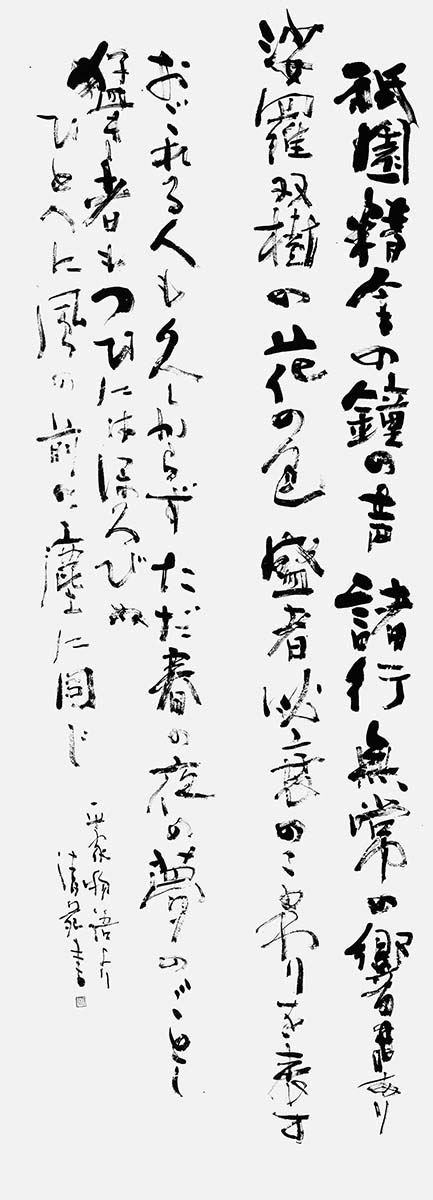 祇園精舎の鐘の声 諸行無常の響きあり
娑羅双樹の花の色 盛者必衰のことわりを表す
おごれる人も久しからず ただ春の夜の夢のごとし
猛き者もつひには滅びぬ
ひとへに風の前の塵に同じ
平家物語より
清苑書